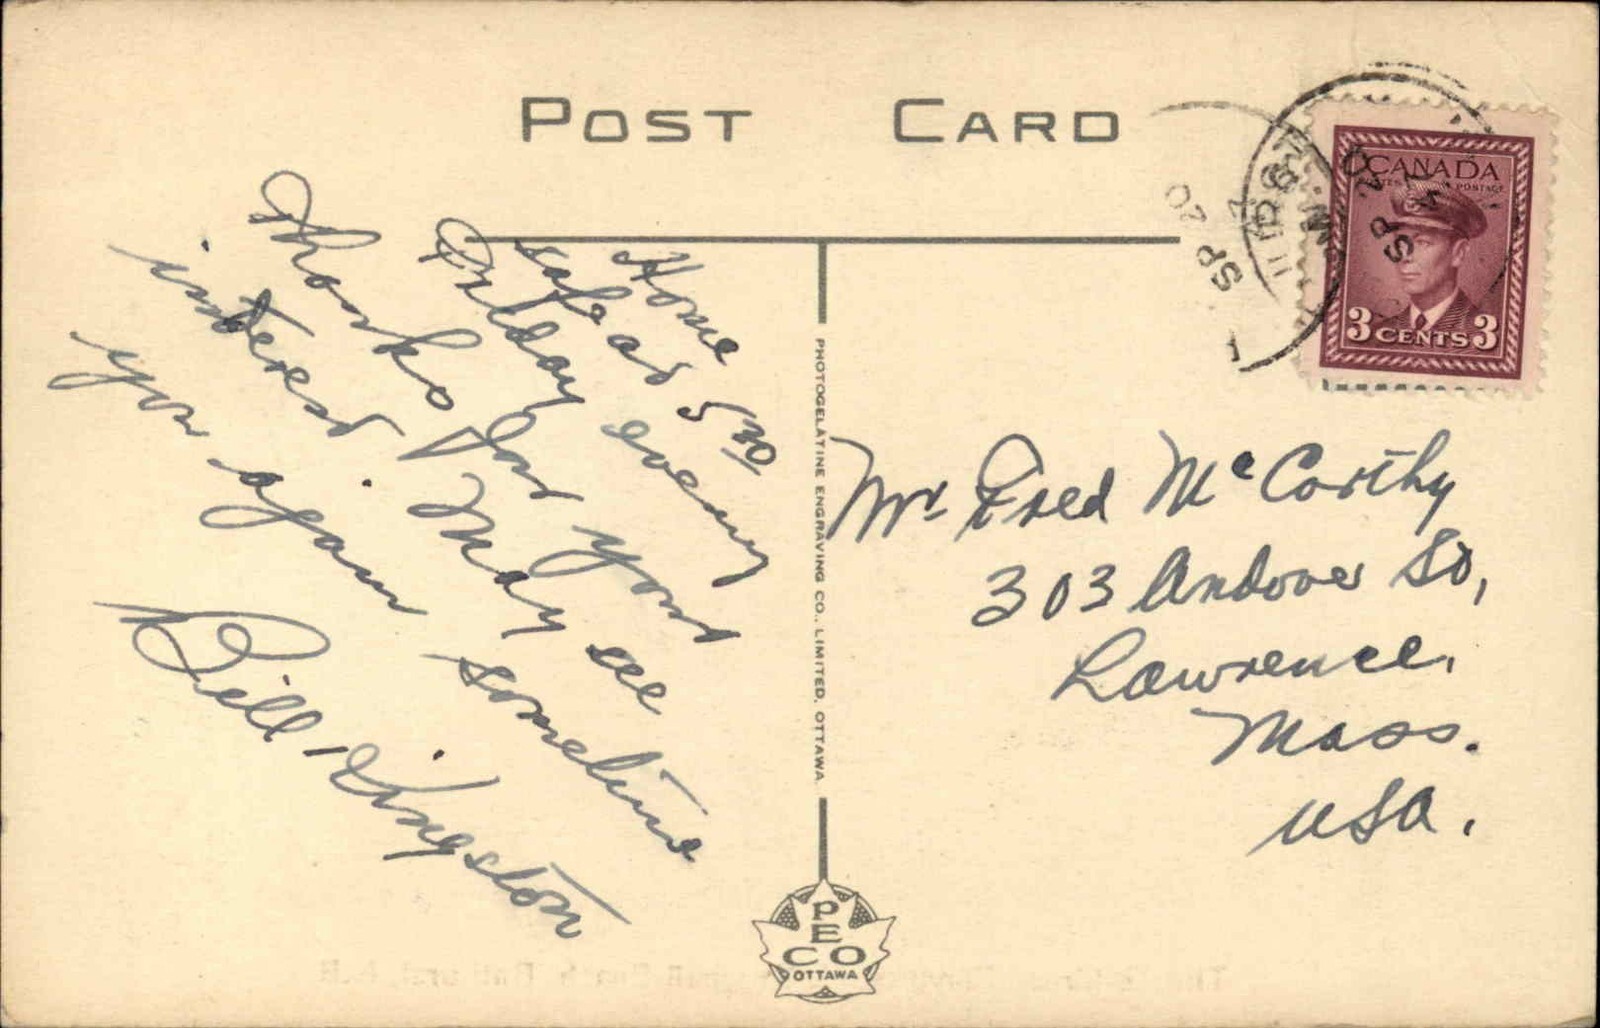 POST CARD
Home
safe at 5 30
Friday evening
Thanks for your
interest. May see
you again sometime
Bill Kingston
PHOTOGELATINE ENGRAVING CO., LIMITED, OTTAWA
PECO
OTTAWA
CANADA
POSTES POSTAGE
3 CENTS 3
SP 20
Mr Fred McCarthy
303 Andover St,
Lawrence,
Mass.
USA.